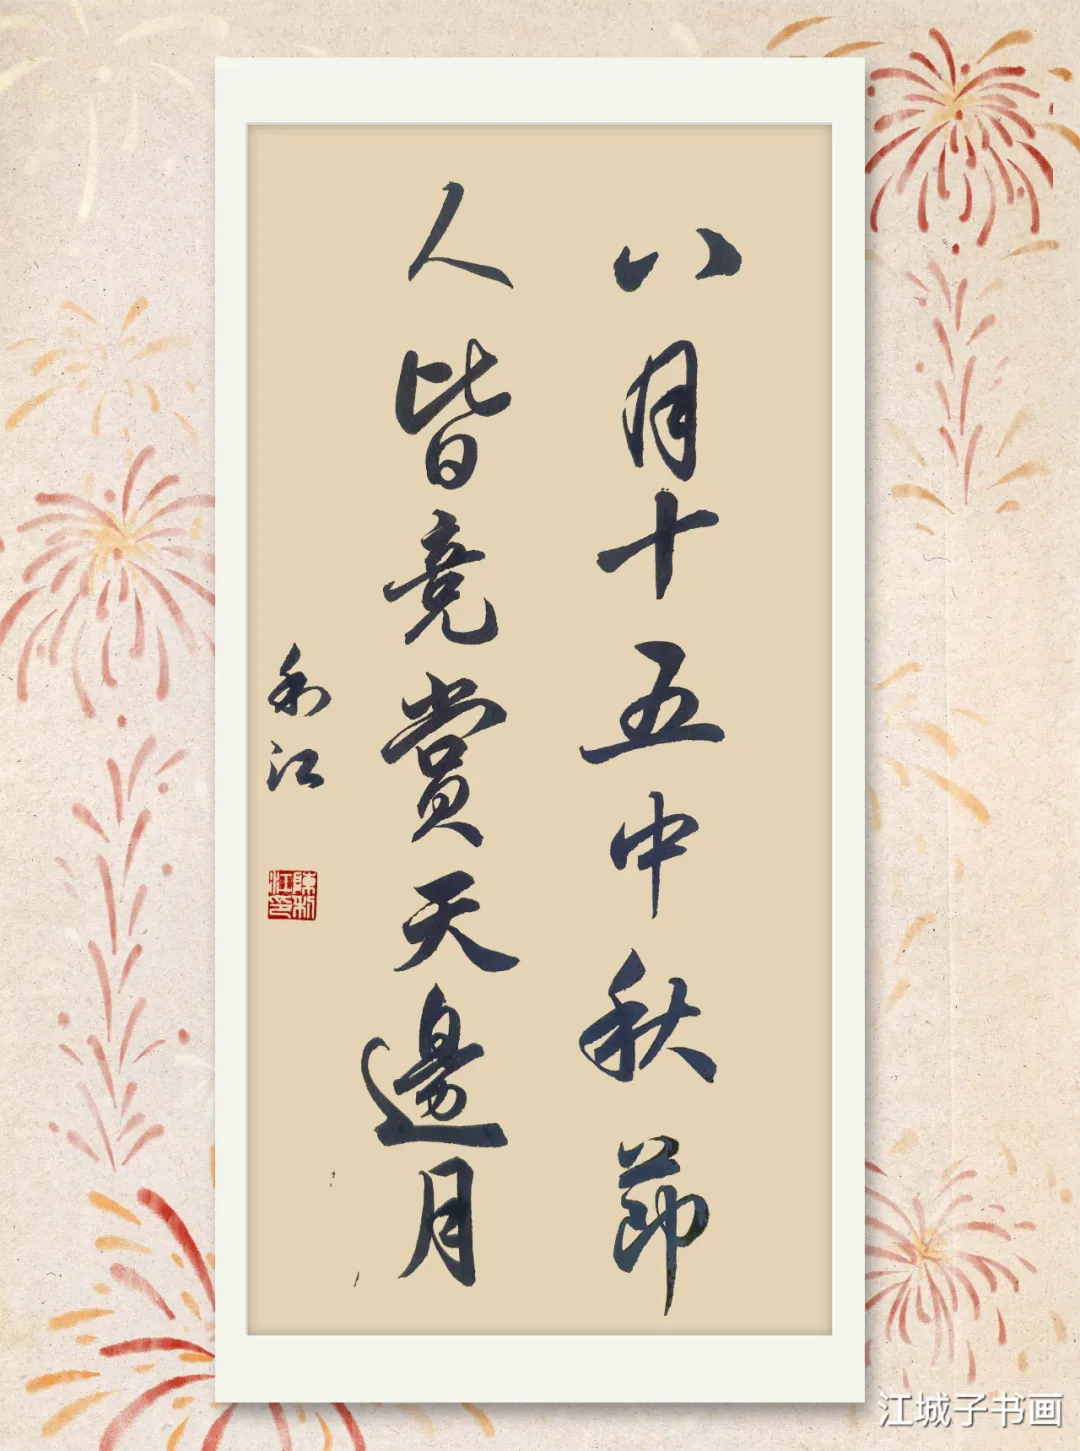 八月十五中秋節
人皆竞賞天邊月
利江
陳利江印
江城子书画